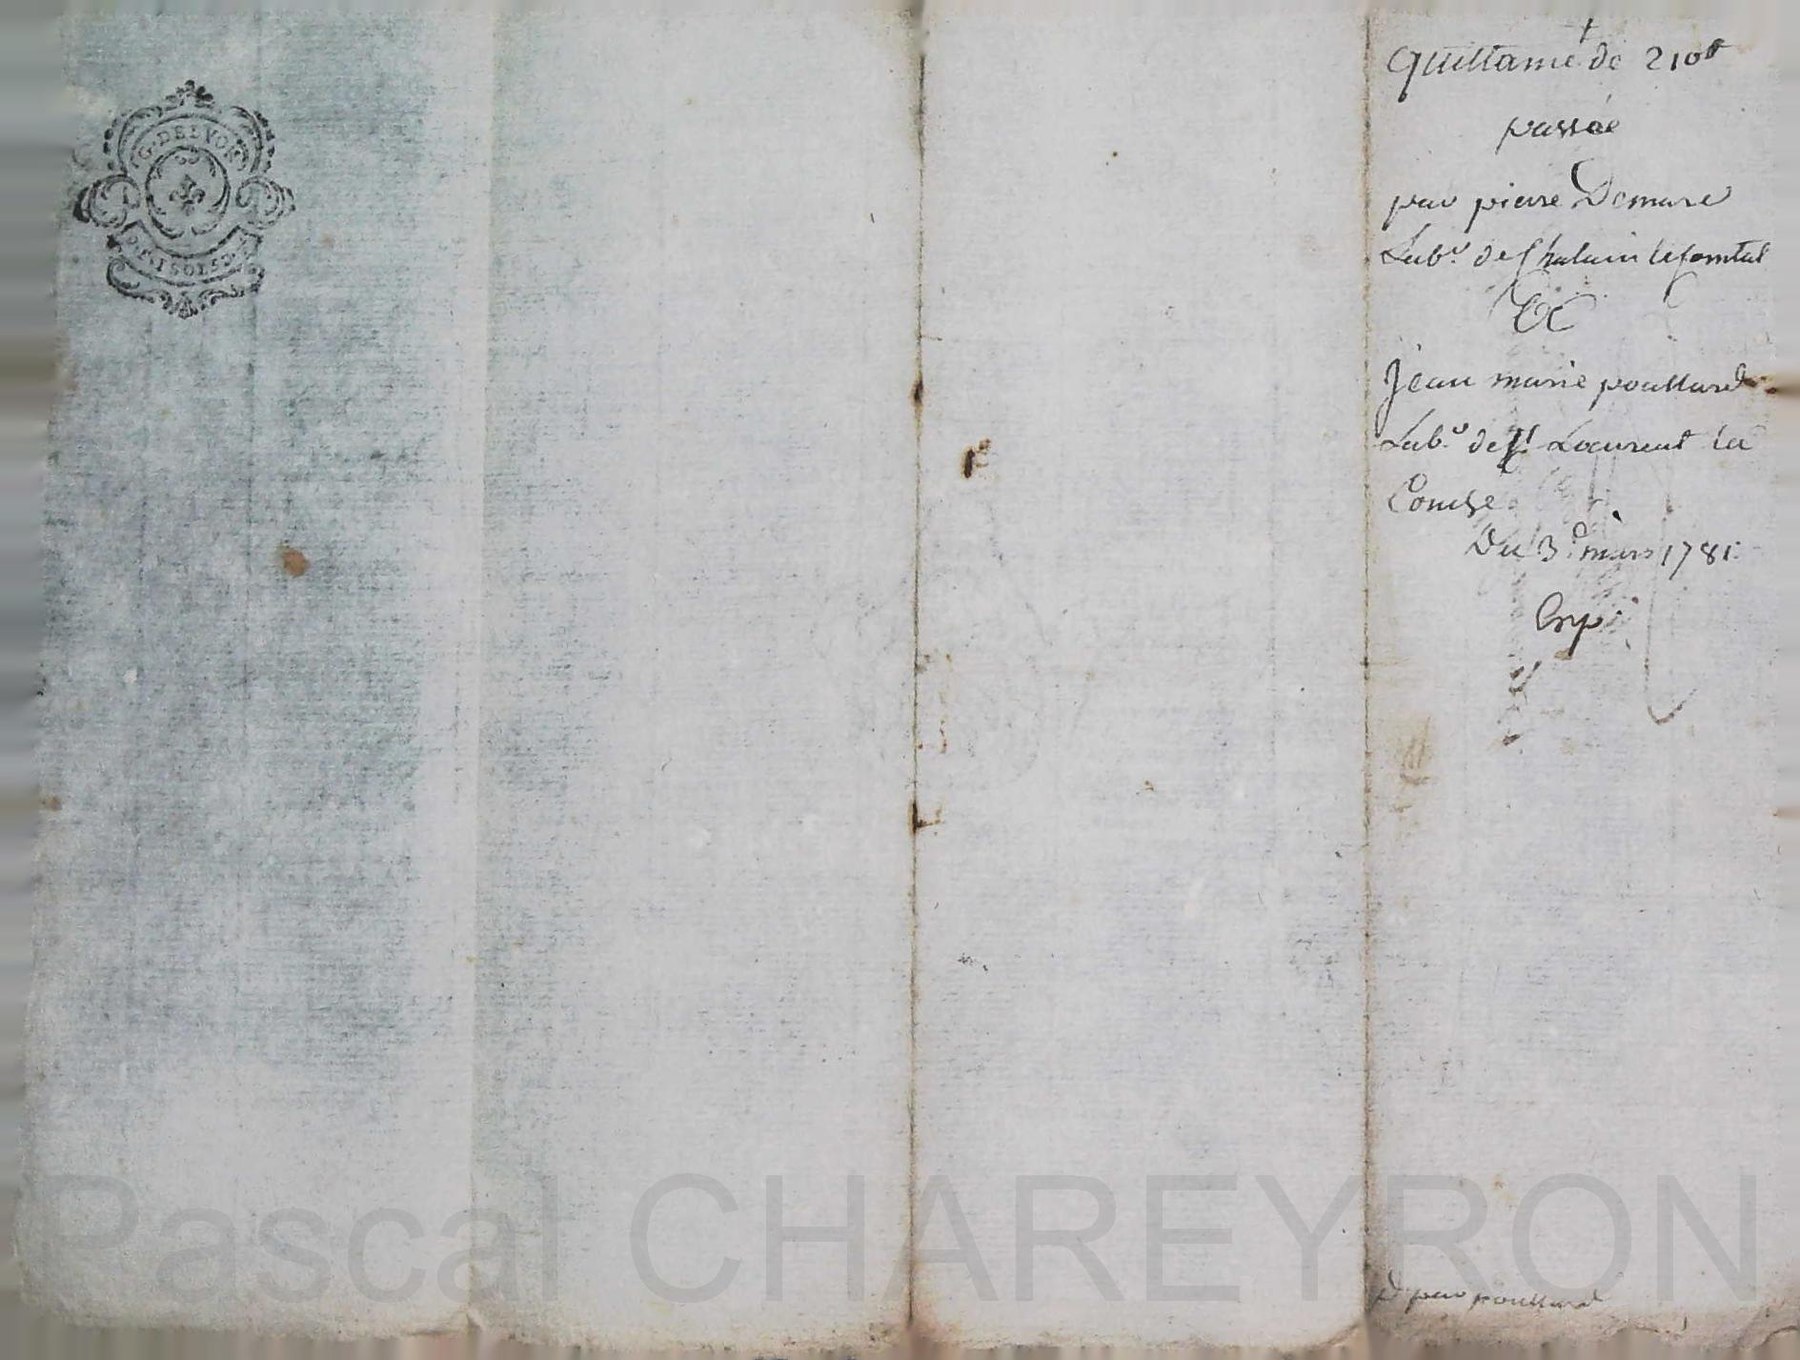 G. DE LYON
P. F. 1 SOLS 4
Quittance de 210ᵗᵗ
passée
par pierre Demare
Labʳ. de Chalain lecomtal
&
Jean marie pouttard
Labʳ de Sᵗ Laurent la
Conche
Du 3ᵉ mars 1781.
Exp.
pʳ pouttard
Pascal CHAREYRON